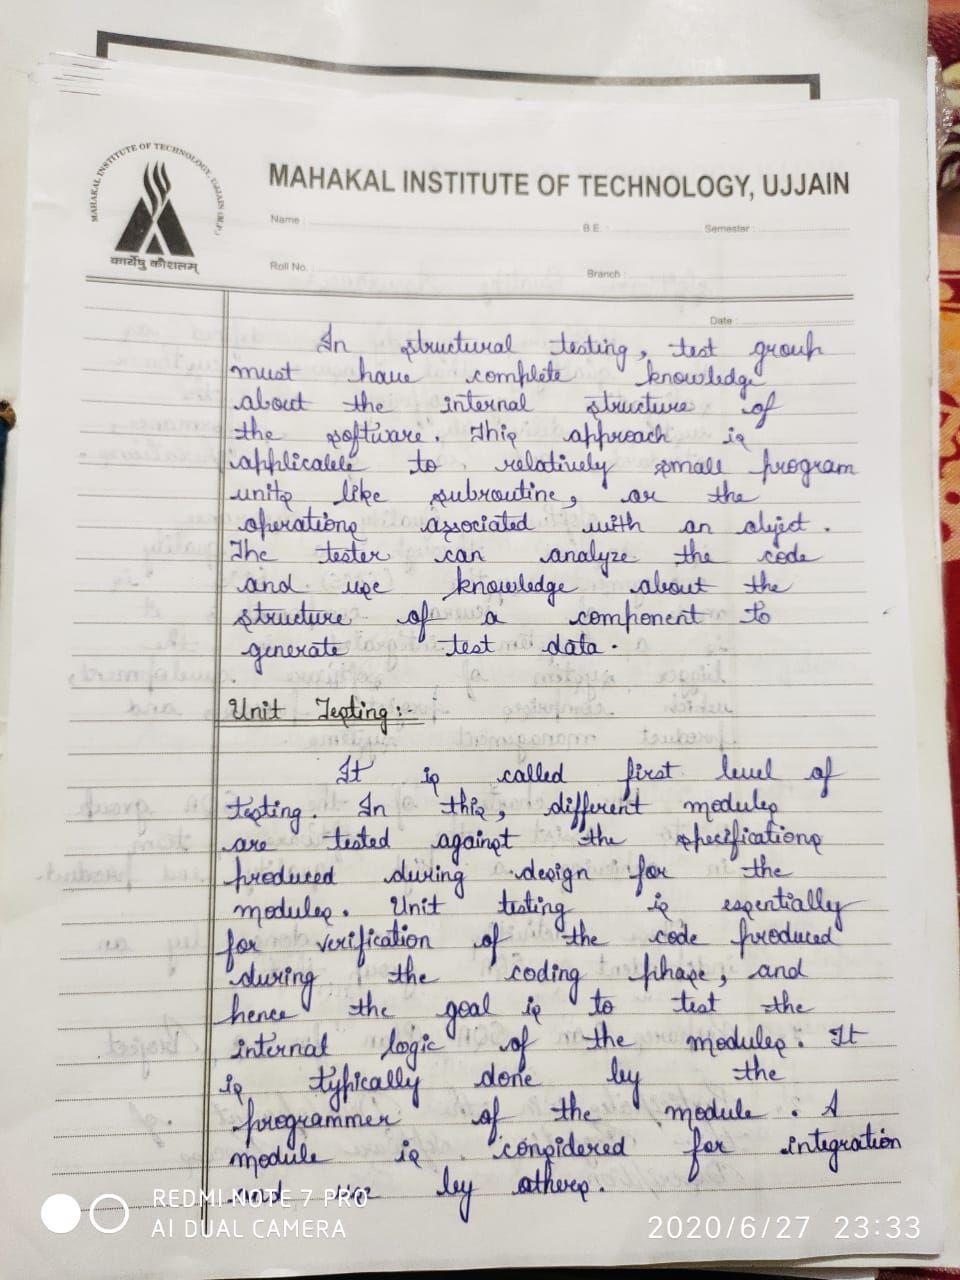 MAHAKAL INSTITUTE OF TECHNOLOGY, UJJAIN (M.P.)
कार्येषु कौशलम्
MAHAKAL INSTITUTE OF TECHNOLOGY, UJJAIN
Name :
B.E. :
Semester :
Roll No. :
Branch :
Date :
In structural testing, test group
must have complete knowledge
about the internal structure of
the software. This approach is
applicable to relatively small program
units like subroutine, or the
operations associated with an object.
The tester can analyze the code
and use knowledge about the
structure of a component to
generate test data.
Unit Testing :-
It is called first level of
testing. In this, different modules
are tested against the specifications
produced during design for the
modules. Unit testing is essentially
for verification of the code produced
during the coding phase, and
hence the goal is to test the
internal logic of the modules. It
is typically done by the
programmer of the module. A
module is considered for integration
and use by others.
REDMI NOTE 7 PRO
AI DUAL CAMERA
2020/6/27 23:33